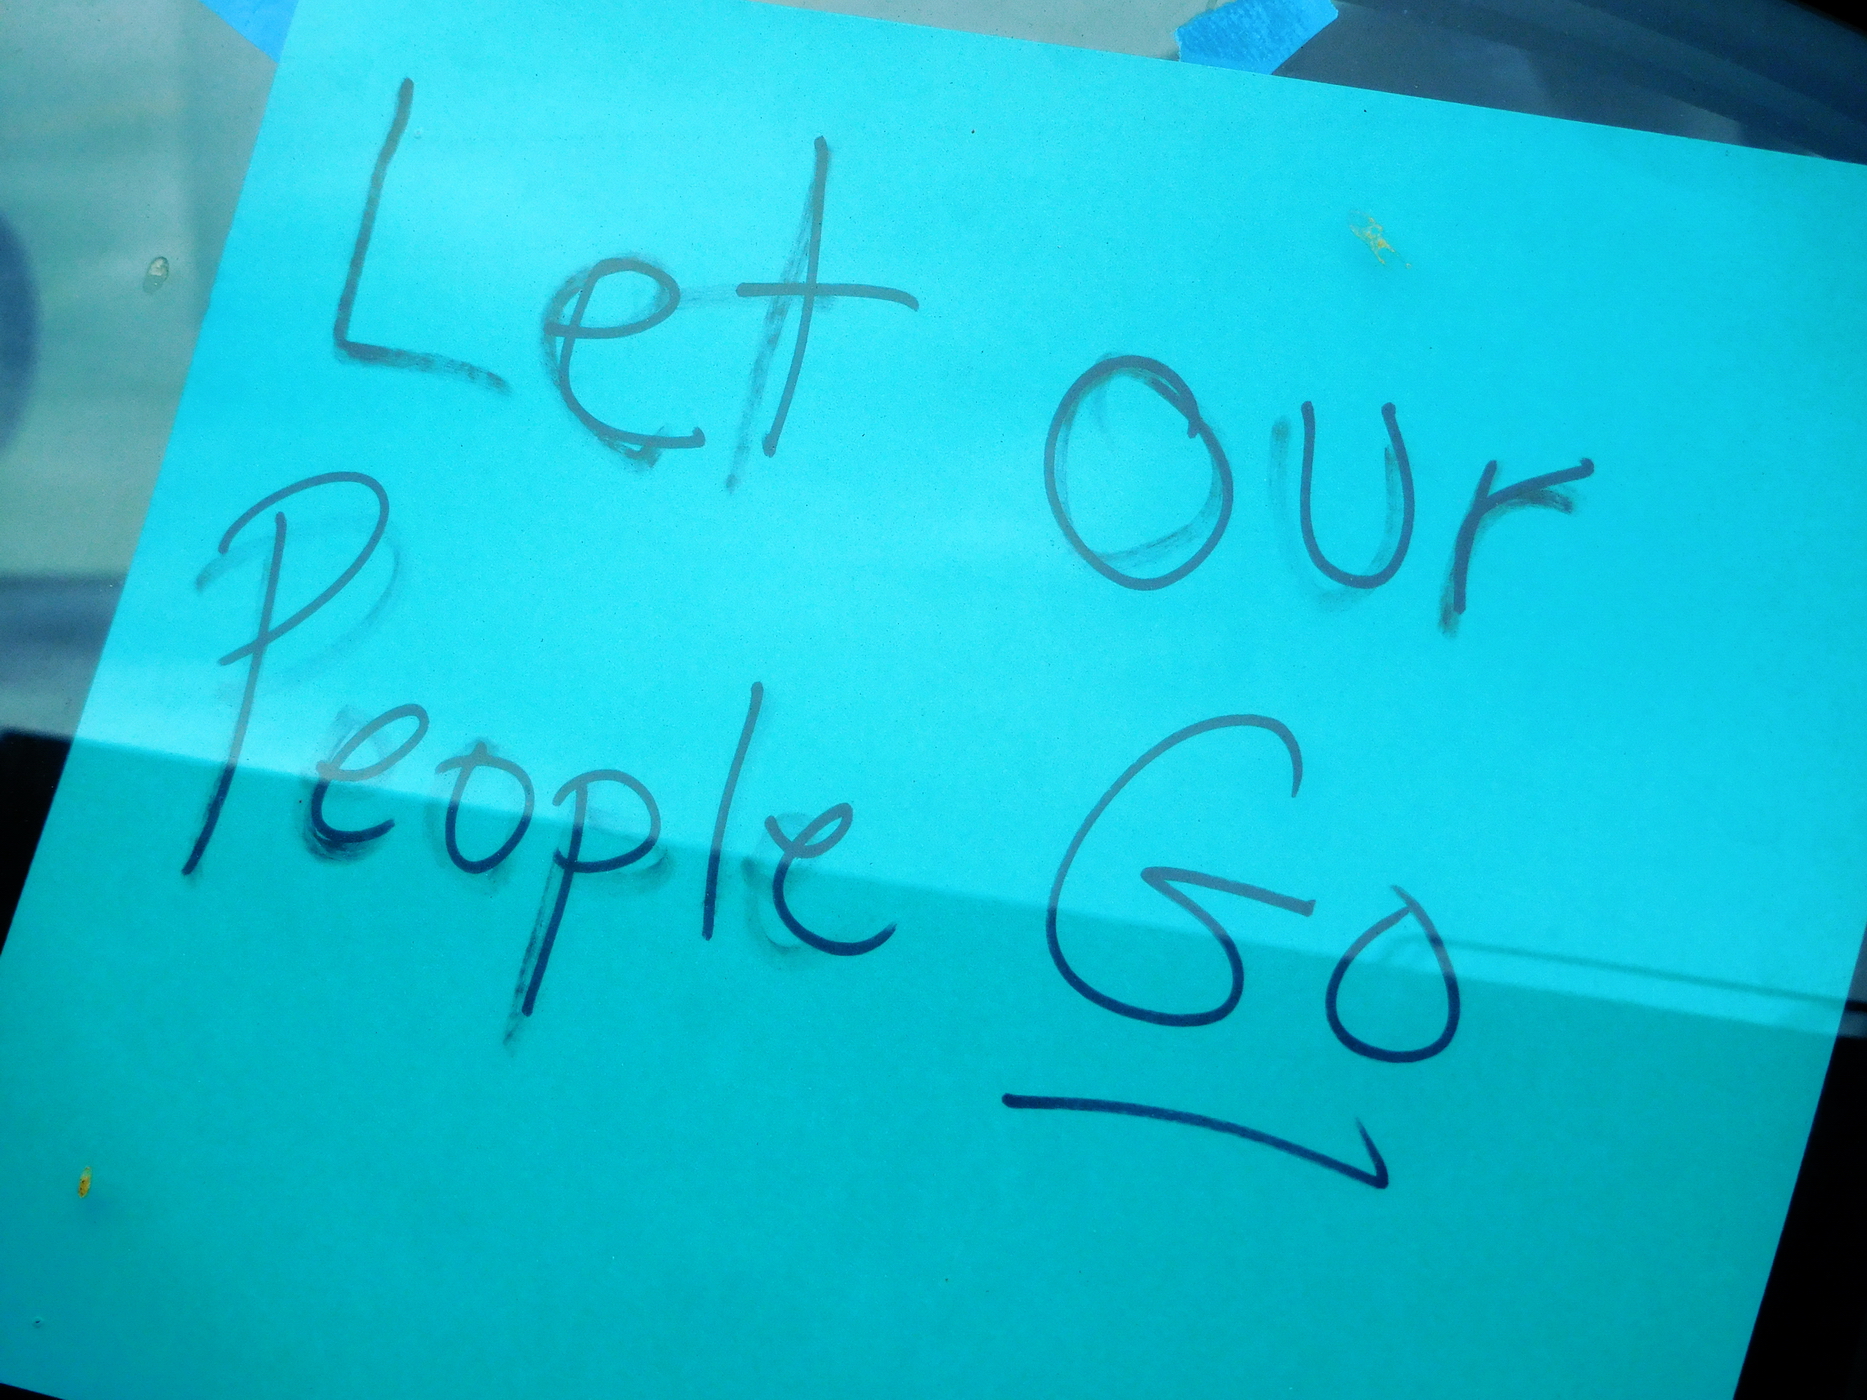 Let Our
People Go